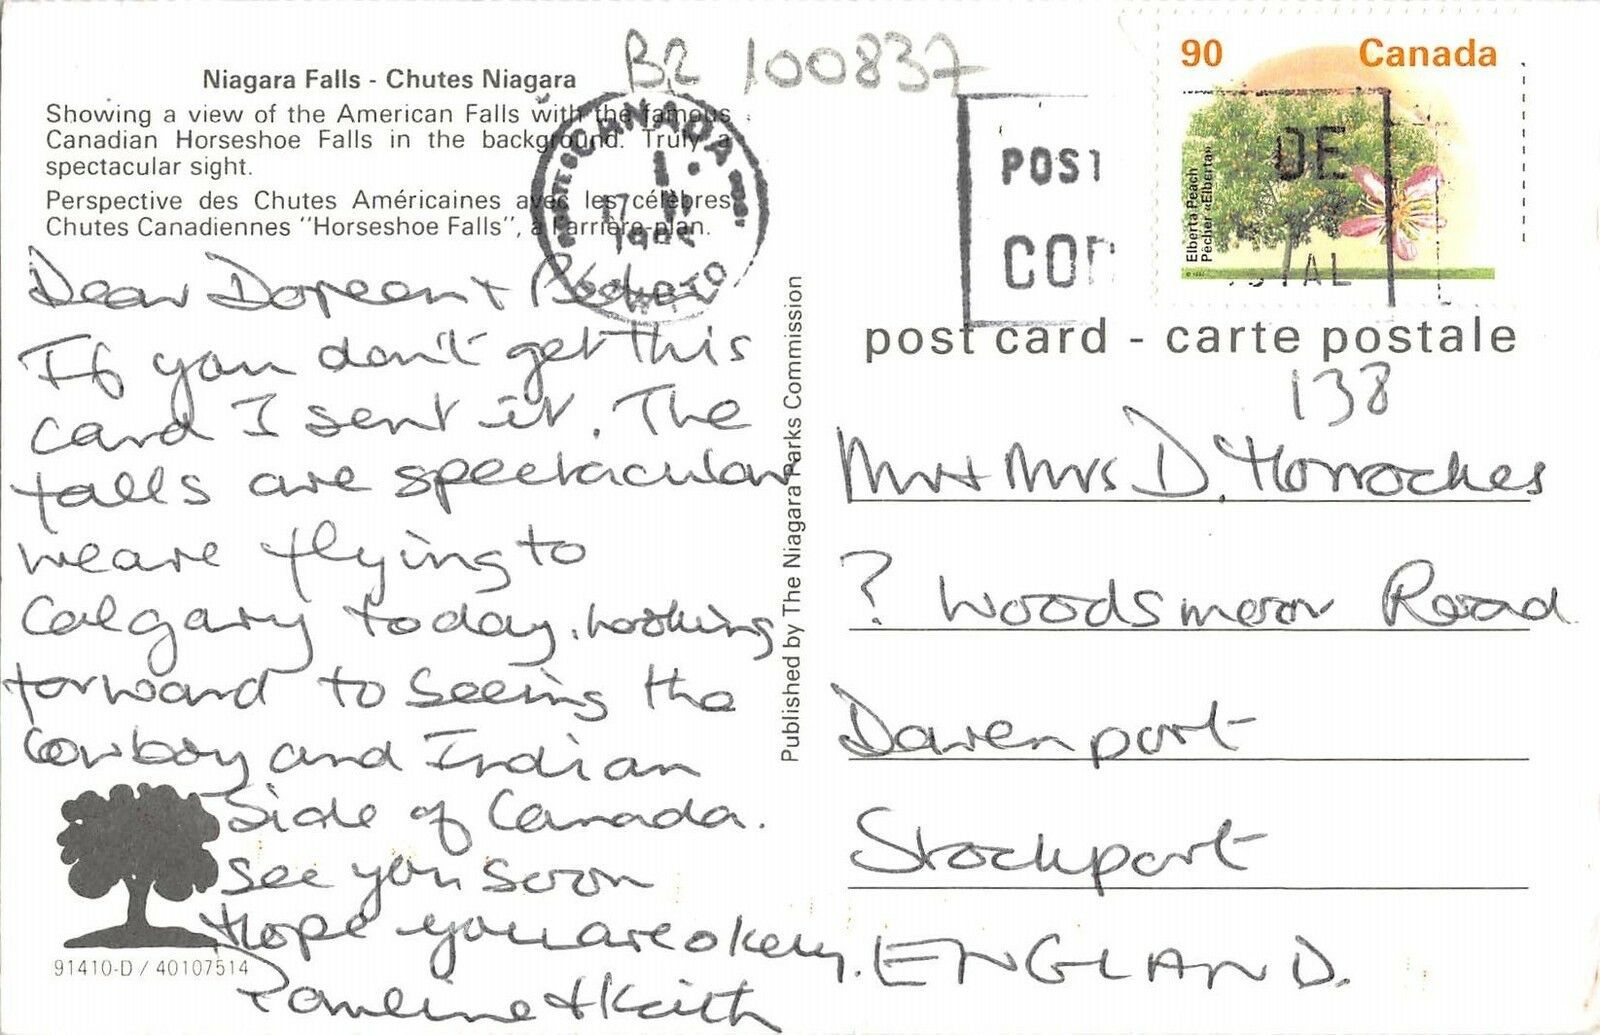 B2 100837
Niagara Falls - Chutes Niagara
Showing a view of the American Falls with the famous
Canadian Horseshoe Falls in the background. Truly a
spectacular sight.
Perspective des Chutes Américaines avec les célèbres
Chutes Canadiennes "Horseshoe Falls", à l'arrière-plan.
Dear Doreen +
If you don't get this
card I sent it. The
falls are spectacular
we are flying to
Calgary today, looking
forward to seeing the
Cowboy and Indian
side of Canada.
see you soon
Hope you are okay.
Pauline + Keith
91410-D / 40107514
Published by The Niagara Parks Commission
CANADA
17
POST
CO
DE
TAL
90 Canada
Elberta Peach
Pêcher «Elberta»
post card - carte postale
138
Mr + Mrs D. Horrockes
? Woodsmoor Road
Davenport
Stockport
ENGLAND.